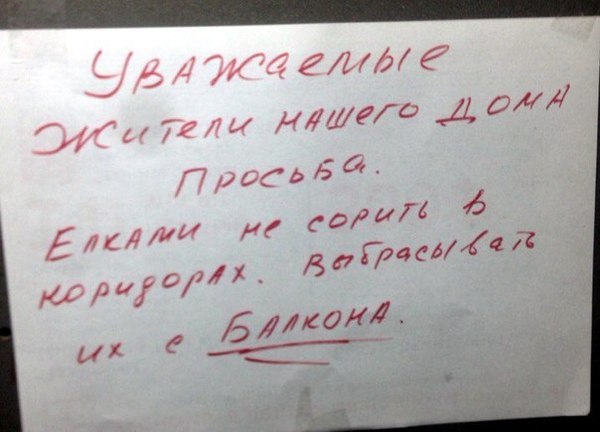 Уважаемые
Жители нашего Дома
Просьба.
Елками не сорить в
коридорах. Выбрасывать
их с Балкона.